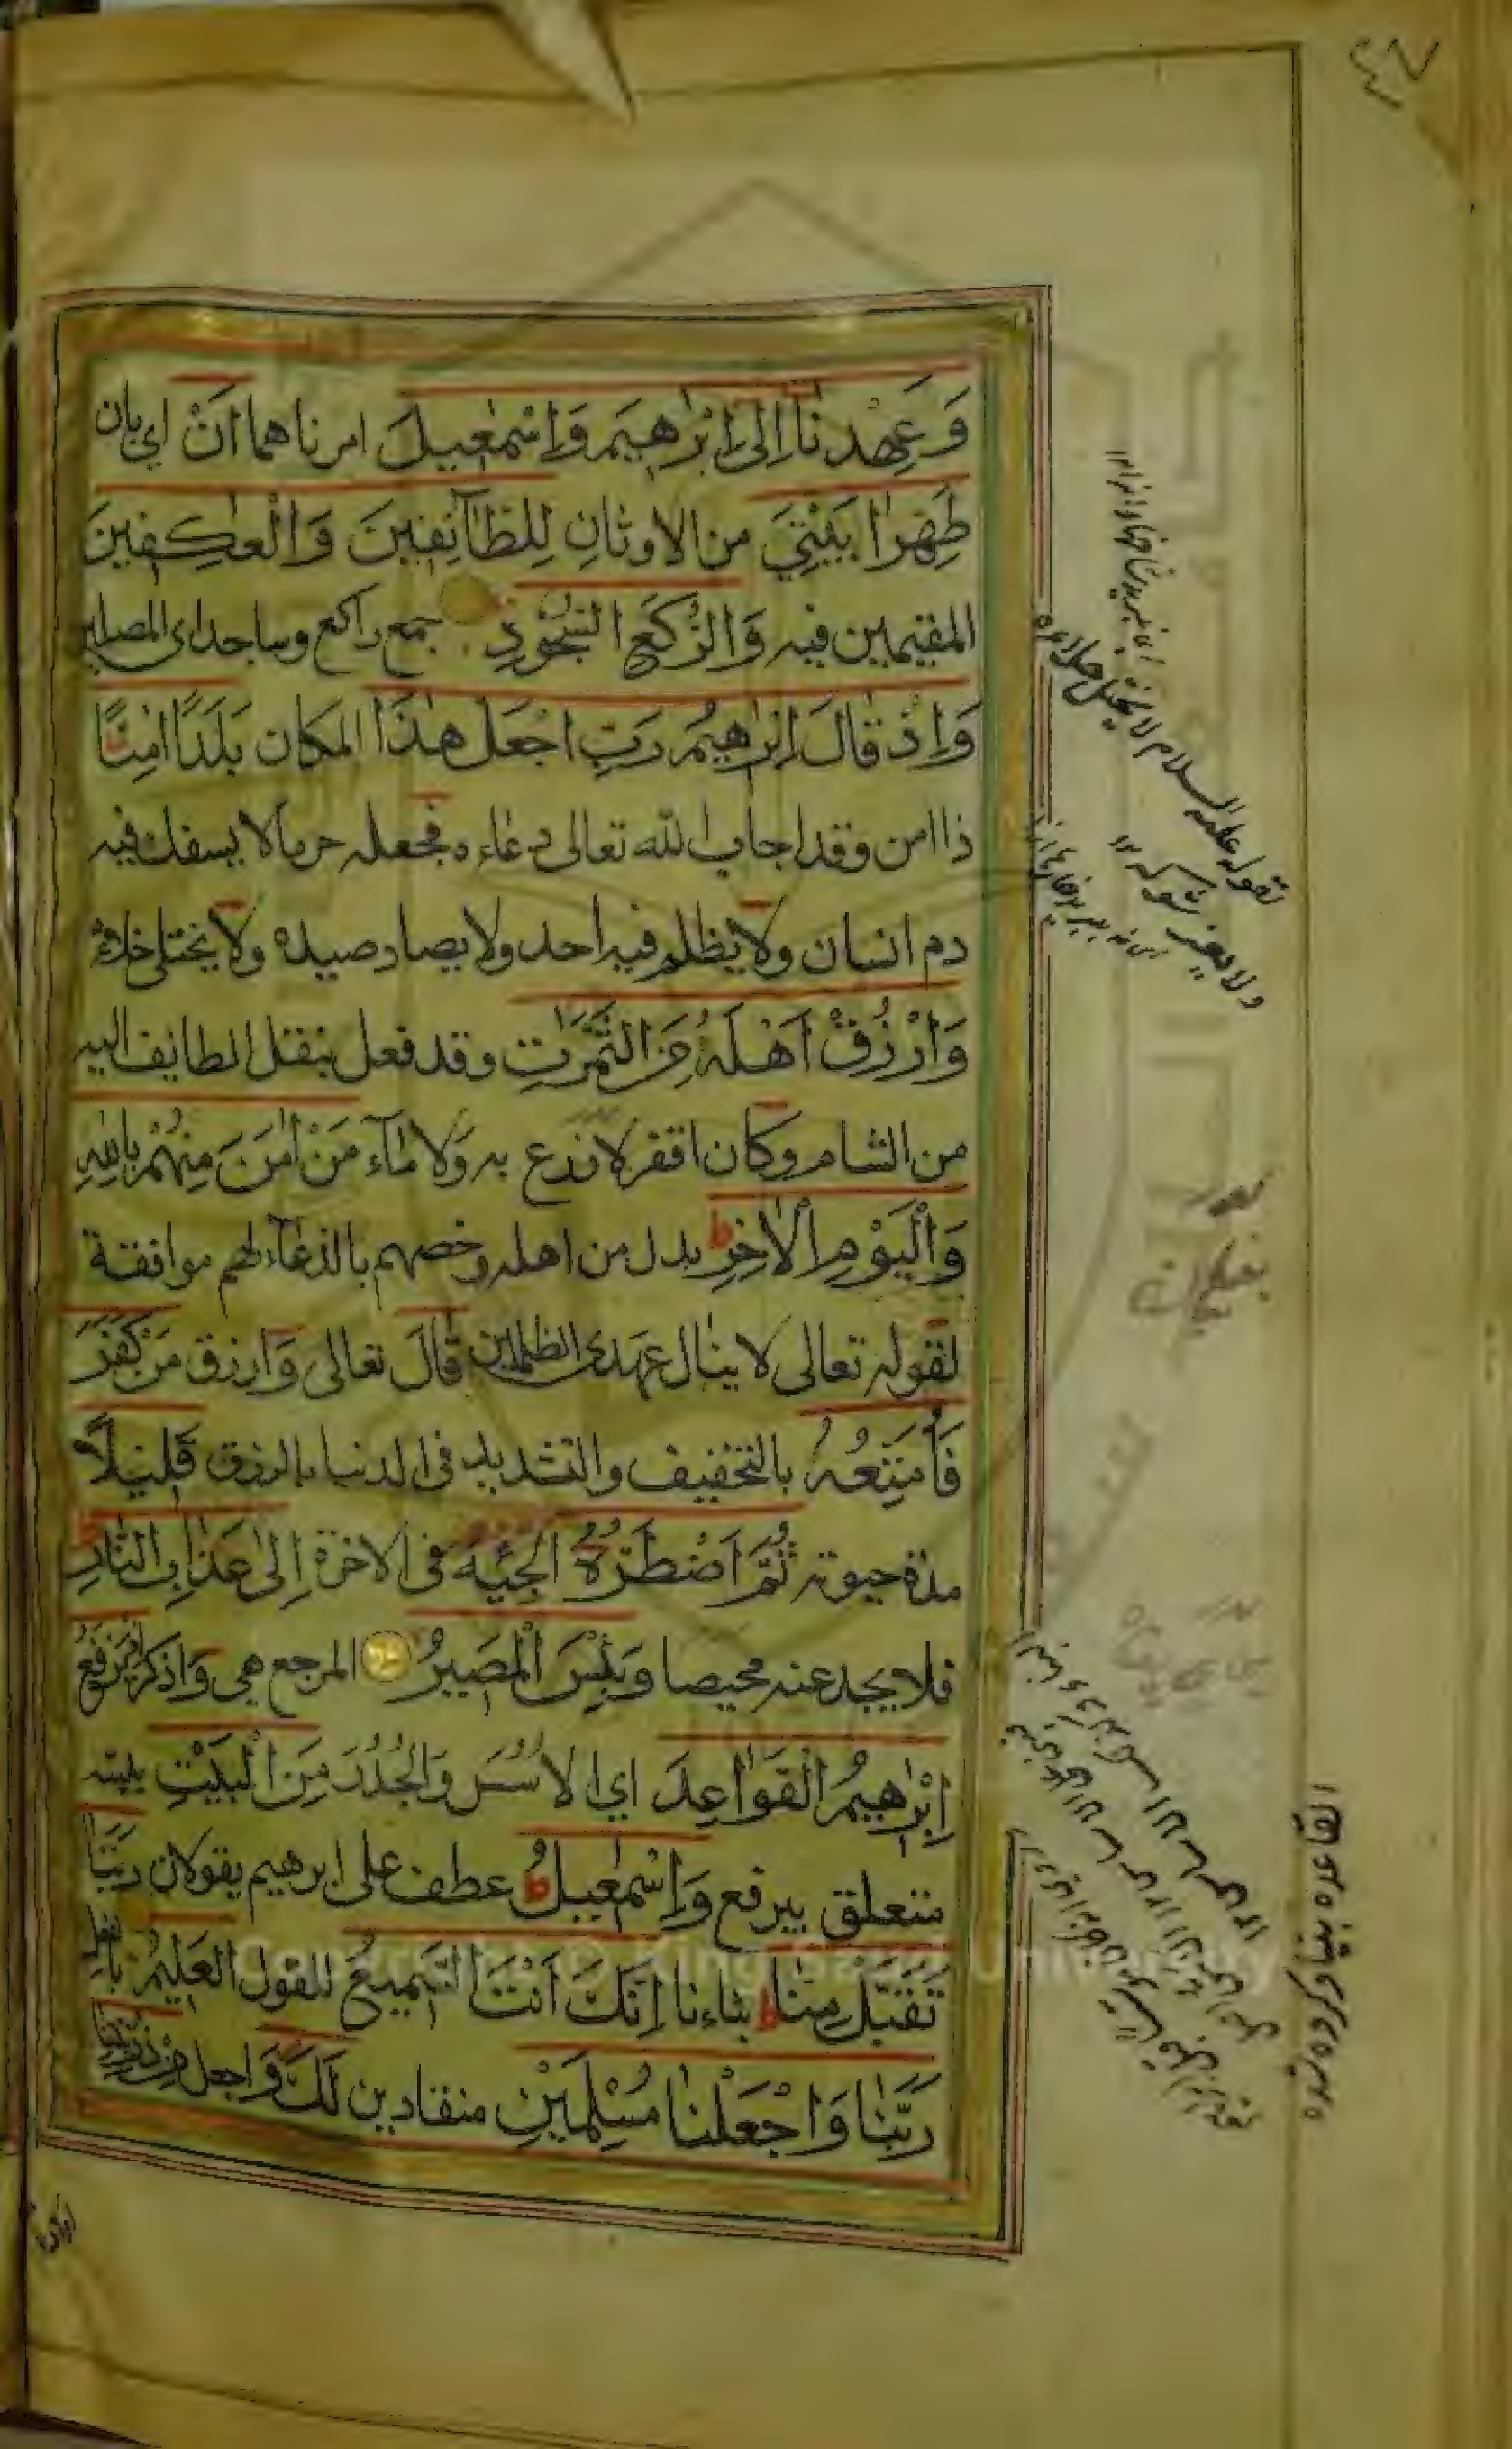 ٤٧
وَعَهِدْنَا اِلٰى اِبْرٰهٖيمَ وَاِسْمٰعِيلَ امرناهما اَنْ اي بان
طَهِّرَا بَيْتِيَ من الاوثان لِلطَّائِفِينَ وَالْعٰكِفِينَ
المقيمين فيه وَالرُّكَّعِ السُّجُودِ جمع راكع وساجد اى المصلين
وَاِذْ قَالَ اِبْرٰهِيمُ رَبِّ اجْعَلْ هٰذَا المكان بَلَدًا اٰمِنًا
ذا امن وقد اجاب الله تعالى دعاءه فجعله حرما لا يسفك فيه
دم انسان ولا يظلم فيه احد ولا يصاد صيده ولا يختلى خلاؤه
وَارْزُقْ اَهْلَهُ مِنَ الثَّمَرٰتِ وقد فعل بنقل الطايف اليه
من الشام وكان اقفر لا زرع به ولا ماء مَنْ اٰمَنَ مِنْهُمْ بِاللهِ
وَالْيَوْمِ الْاٰخِرِ ط بدل من اهله وخصهم بالدعاء لهم موافقة
لقوله تعالى لا ينال عهدى الظلمين قَالَ تعالى وَارزق مَنْ كَفَرَ
فَاُمَتِّعُهُ بالتخفيف والتشديد فى الدنيا بالرزق قَلِيلًا
مدة حيوته ثُمَّ اَضْطَرُّهُ الجئه فى الاخرة اِلٰى عَذَابِ النَّارِ
فلا يجد عنه محيصا وَبِئْسَ الْمَصِيرُ المرجع هي وَاذكر اِذْ يَرْفَعُ
اِبْرٰهِيمُ الْقَوَاعِدَ اي الاسُسَ وَالجُدُرَ مِنَ الْبَيْتِ يبنيه
متعلق بيرفع وَاِسْمٰعِيلُ ط عطف على ابرهيم يقولان رَبَّنَا
تَقَبَّلْ مِنَّا ط بناءنا اِنَّكَ اَنْتَ السَّمِيعُ للقول الْعَلِيمُ بالفعل
رَبَّنَا وَاجْعَلْنَا مُسْلِمَيْنِ منقادين لَكَ وَاجعل مِنْ ذُرِّيَّتِنَا
لقوله عليه السلام لا يختلى خلاؤه
ولا يعضد شوكه ١٢
القاعده بنياد كرده شده